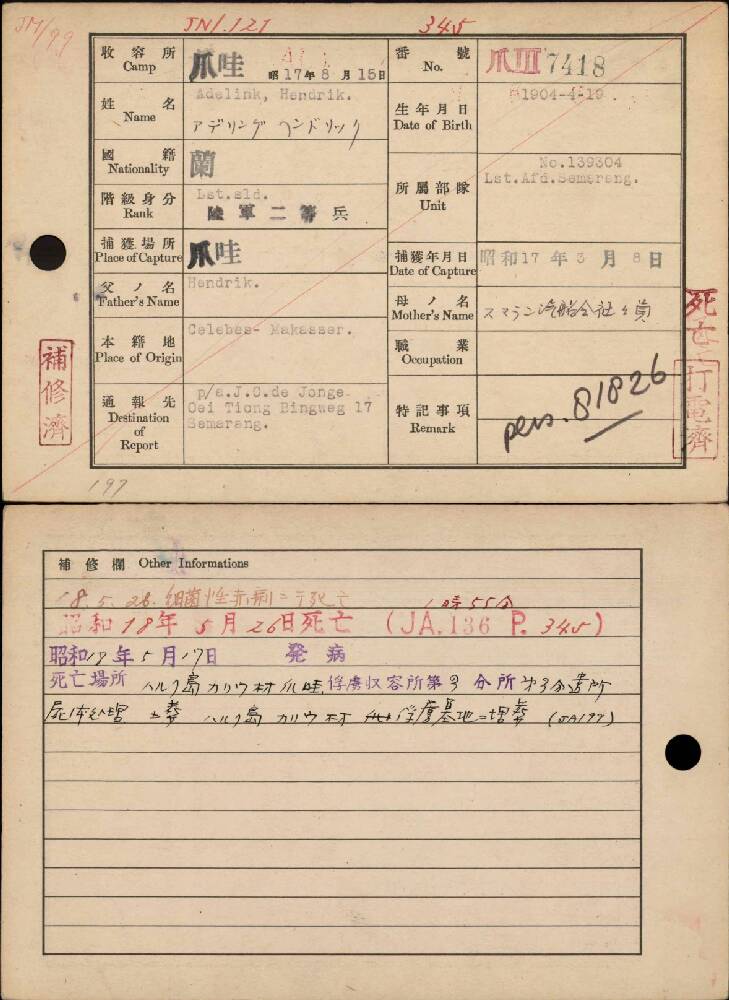 JM/99
JN/.121
345
收容所 Camp
爪哇 昭17年8月15日
番號 No.
爪III 7418
姓名 Name
Adelink, Hendrik.
アデリンク ヘンドリック
生年月日 Date of Birth
1904-4-19
國籍 Nationality
蘭
階級身分 Rank
Lst.sld.
陸軍二等兵
所屬部隊 Unit
No.139304
Lst.Afd.Semarang.
捕獲場所 Place of Capture
爪哇
捕獲年月日 Date of Capture
昭和17年3月8日
父ノ名 Father's Name
Hendrik.
母ノ名 Mother's Name
スマラン汽船会社々員
本籍地 Place of Origin
Celebes- Makasser.
職業 Occupation
通報先 Destination of Report
p/a.J.C.de Jonge
Oei Tiong Bingweg 17
Semarang.
特記事項 Remark
pers. 81826
補修濟
死亡
打電濟
197
補修欄 Other Informations
18.5.26. 細菌性赤痢ニテ死亡 1時55分
昭和18年5月26日死亡 (JA.136 P. 345)
昭和17年5月17日 発病
死亡場所 ハルク島カリウ村爪哇俘虜収容所第3分所第3分遣所
土葬 ハルク島カリウ村 俘虜墓地ニ埋葬 (JA197)